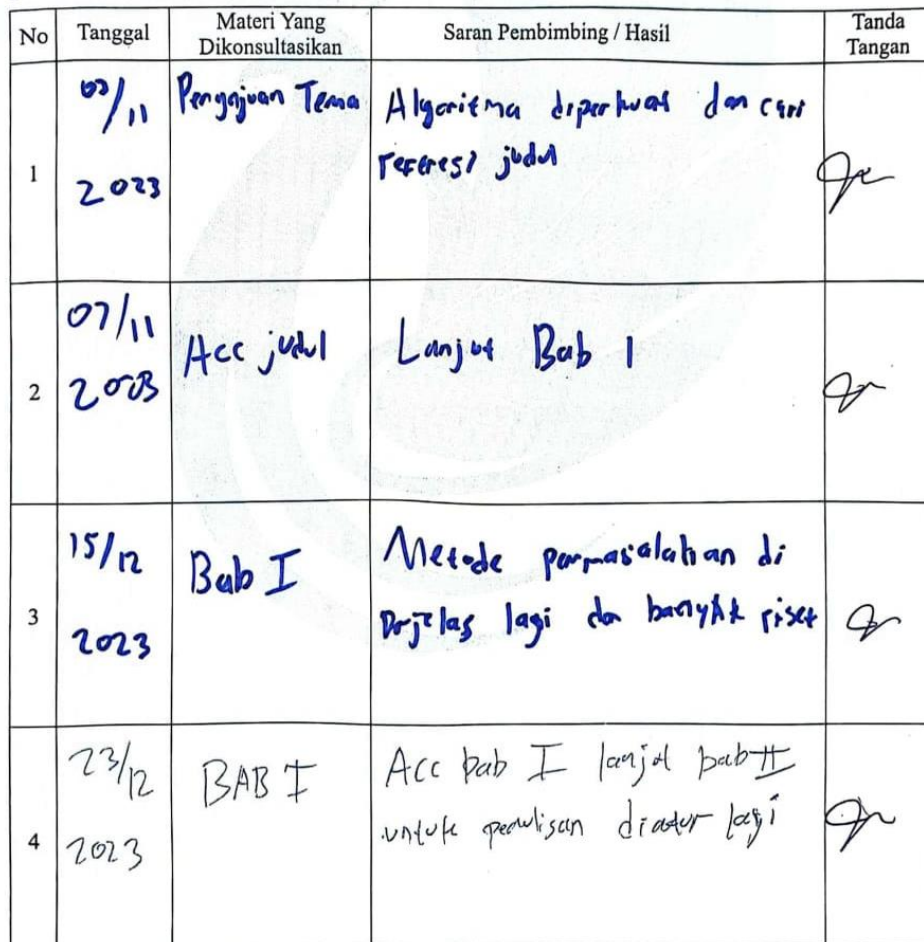 No Tanggal Materi Yang Dikonsultasikan Saran Pembimbing / Hasil Tanda Tangan
1
03/11
2023
Pengajuan Tema
Algoritma diperluas dan cari
referesi judul
2
07/11
2023
Acc judul
Lanjut Bab 1
3
15/12
2023
Bab I
Metode permasalahan di
Perjelas lagi dan banyak riset
4
23/12
2023
BAB I
Acc bab I lanjut bab II
untuk penulisan diatur lagi